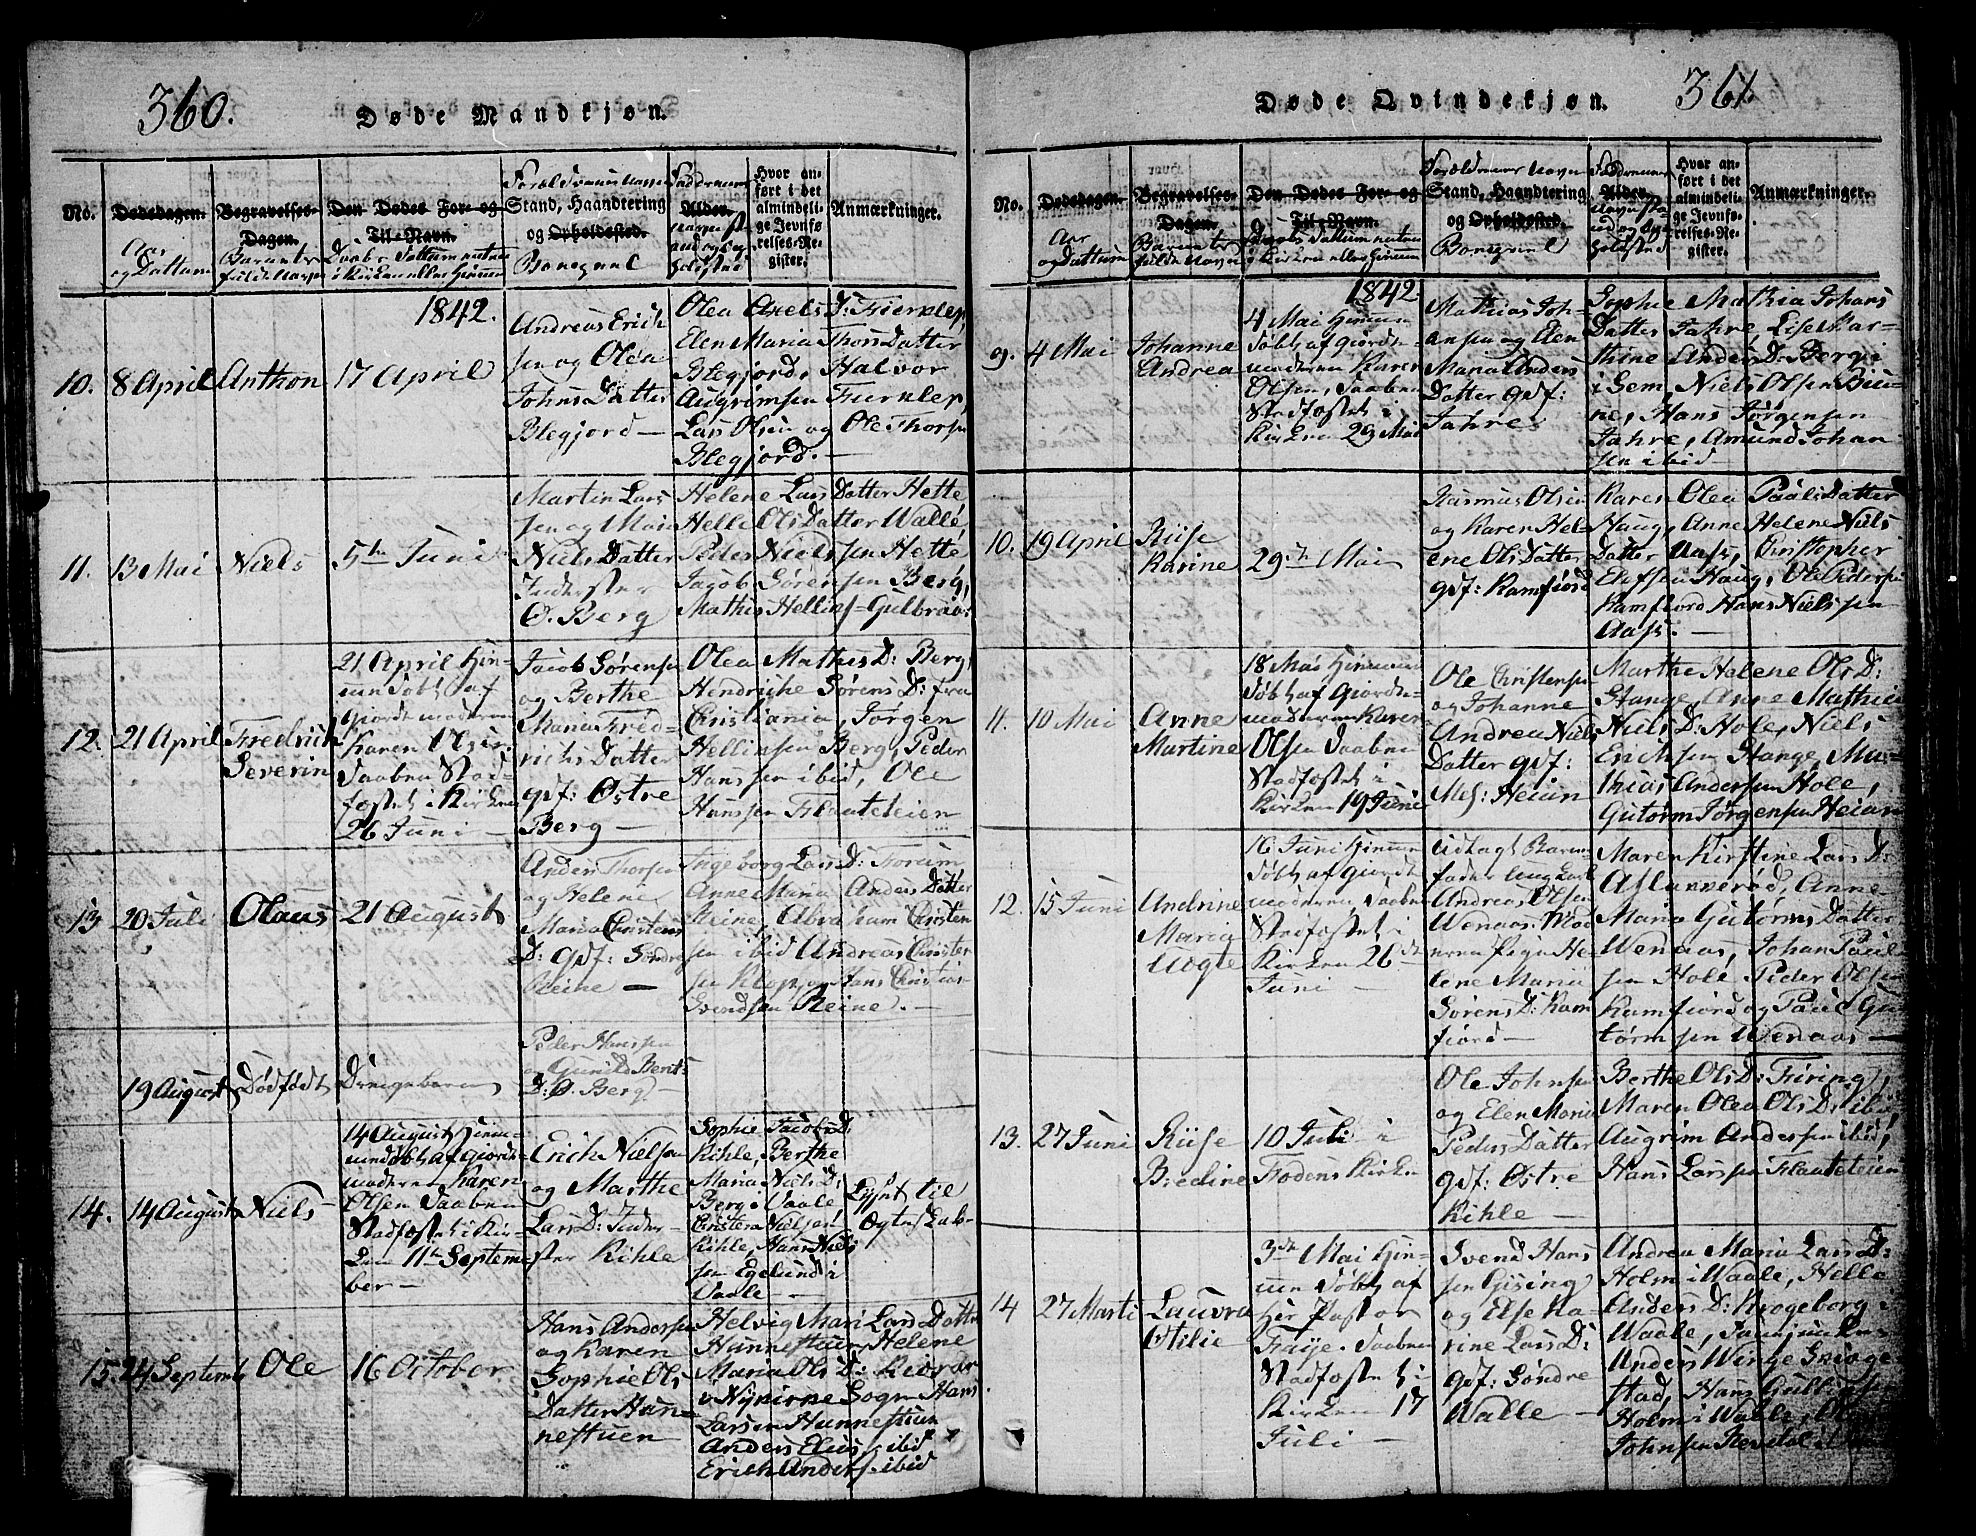 360.
Døde Mandkjøn.
No.
Dødsdagen.
Aar
og Dattum
Begravelses-
Dagen.
Den Dødes For- og
Til-Navn.
Stand, Haandtering
og Opholdssted.
Alder.
Hvor an-
ført i det
almindeli-
ge Jevnfø-
relses-Re-
gister.
Anmærkninger.
1842.
10.
8 April
Anthon
17 April
Andreas Erich
sen og Olea
Johns Datter
Blegjord
Olea Axels D:
Elen Maria Thors Datter
Blegjord, Halvor
Augrimsen
Lars Olsen og Ole Thorsen
Blegjord.
11.
13 Mai
Niels
5te Juni
Martin Lars
sen og
Niels Datter
Inderster
Ø. Berg
Helene Lars Datter Hette
Helle Ols Datter Walle
Peder Nielssen Hette
Jacob Sørensen Berg,
Mathis Hellins=
12.
21 April
Fredrich
Severin
21 April Hjem-
men døbt af
Giordemoderen
Karen Olsen
Daaben Stad-
fæstet i Kirken
26 Juni
Jacob Sørensen
og Berthe
Maria Fred-
richs Datter
gdf: Østre
Berg
Olea Mathis D: Berg,
Hendriche Sørens D: fra
Christiania, Jørgen
Hellinsen Berg, Peder
Hanssen ibid, Ole
Hanssen Flauteteien
13
20 Juli
Olaus
21 August
Anders Thorsen
og Helene
Maria Christens
D: gdf: Søndre
Reine
Ingeborg Lars D: Forum
Anne Maria Anders Datter
Reine, Abraham Christen
sen ibid Andreas Christen
sen Klopp og Hans Christian
Svendsen Reine.
19 August
Dødfødt
Drengebarn
Peder Hanssen
og Gunild Bernts
D: Ø. Berg
14.
14 August
Niels
14 August Hjem-
men døbt af Giorde-
moderen Karen
Olsen Daaben
Stadfæstet i Kir-
ken 11te Septem-
ber
Erich Nielsen
og Marthe
Lars D: Inder-
ster Kihle
Sophie Jacobs D:
Kihle, Berthe
Maria Niels D:
Berg i Vaale
Kihle, Hans Niels
sen Egelund i
Vaale
Lyst til
Ægteskab
15.
24 Septemb
Ole
16 October
Hans Andersen
og Karen
Sophie Ols
Datter Hun-
nestuen
Helvig Mari Lars Datter
Hunnestuen, Helene
Maria Ols D:
Nykirke Sogn Hans
Larsen Hunnestuen
Anders ibid
Erich Anders ibid
Døde Qvindekjøn.
361.
No.
Dødsdagen.
Aar
og Dattum
Begravelses-
Dagen.
Den Dødes For- og
Til-Navn.
Stand, Haandtering
og Opholdssted.
Alder.
Hvor an-
ført i det
almindeli-
ge Jevnfø-
relses-Re-
gister.
Anmærkninger.
1842
9.
4 Mai
Johanne
Andrea
4 Mai Hiemmen
døbt af Giorde-
moderen Karen
Olsen, Daaben
Stadfæstet i
Kirken 29 Mai
Mathias Joh-
ansen og Elen
Maria Anders
Datter gdf:
Jahre
Sophie Mathia Johans
Datter Jahre, Lise Kar-
thine Anders D: Berg i
i Sem, Niels Olsen
Hans Jørgensen
Jahre, Amund Johan-
sen ibid
10.
19 April
Riise
Karine
29de Mai
Rasmus Olsen
og Karen Hel-
ene Ols Datter
gdf: Ramfiord
Karen Olea Paals Datter
Haug, Anne Helene Niels
Datter Aass, Christopher
Elefsen Haug, Ole Pedersen
Ramfiord Hans Nielssen
Aass.
11.
10 Mai
Anne
Martine
18 Mai Hiemmen
døbt af Giorde-
moderen Karen
Olsen Daaben
Stadfæstet i
Kirken 19 Juni
Ole Christensen
og Johanne
Andrea Niels
Datter gdf:
Heian
Marthe Helene Ols D:
Stange, Anne Mathea
Niels D: Hole, Niels
Erichsen Stange, Ma-
thias Andersen Hole,
Gutorm Jørgensen Heian
12.
15 Juni
Andrine
Maria
Aagte
16 Juni Hiemmen
døbt af Giorde-
moderen Daaben
Stadfæstet i
Kirken 26de
Juni
Udlagt Barne-
fader Ung Karl
Andreas Olsen
Wenaas. Mod
eren Pige He-
lene Maria
Sørens D: Ram
fiord
Maren Kirstine Lars D:
Aslaverød, Anne
Maria Gutorms Datter
Wenaas, Johan Paul
sen Hole Peder Olsen
Ramfiord og Paul Gu-
tormsen Wenaas
13.
27 Juni
Riise
Bredine
10 Juli i
Fodens Kirken
Ole Johnsen
og Elen Maria
Peders Datter
gdf: Østre
Kihle
Berthe Ols D: Firing,
Maren Olea Ols D: ibid,
Augrim Andersen ibid,
Hans Larssen Flauteteien
14
27 Marti
Lauvra
Otilie
3de Mai Hjem-
men døbt af
Her Pastor
Fraije. Daaben
Stadfæstet i
Kirken 17
Juli
Svend Hans
sen Gising
og Else Ka-
rine Lars D:
gdf: Søndre
Walle
Andrea Maria Lars D:
Holm i Waale, Helle
Anders D: Krogeborg i
Waale,
Anders Winge
stad, Hans Gullichsen
Holm i Waale,
Johnsen